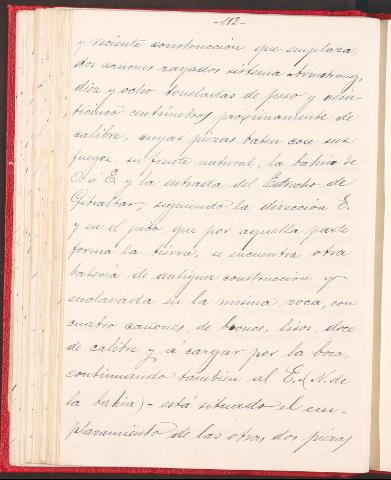 -112-
y reciente construccion, que emplaza
dos cañones rayados sistema Armstrong,
diez y ocho toneladas de peso y vein-
ticinco centímetros proximamente de
calibre, cuyas piezas baten con sus
fuegos su frente natural, la bahia de
O á E. y la entrada del Estrecho de
Gibraltar; siguiendo la direccion E.
y en el pico que por aquella parte
forma la tierra, se encuentra otra
bateria de antigua construccion y
enclavada en la misma roca, con
cuatro cañones, de bronce, lisos, doce
de calibre y á cargar por la boca,
continuando tambien al E.-(N. de
la bahia)- está situado el em-
plazamiento de las otras dos piezas